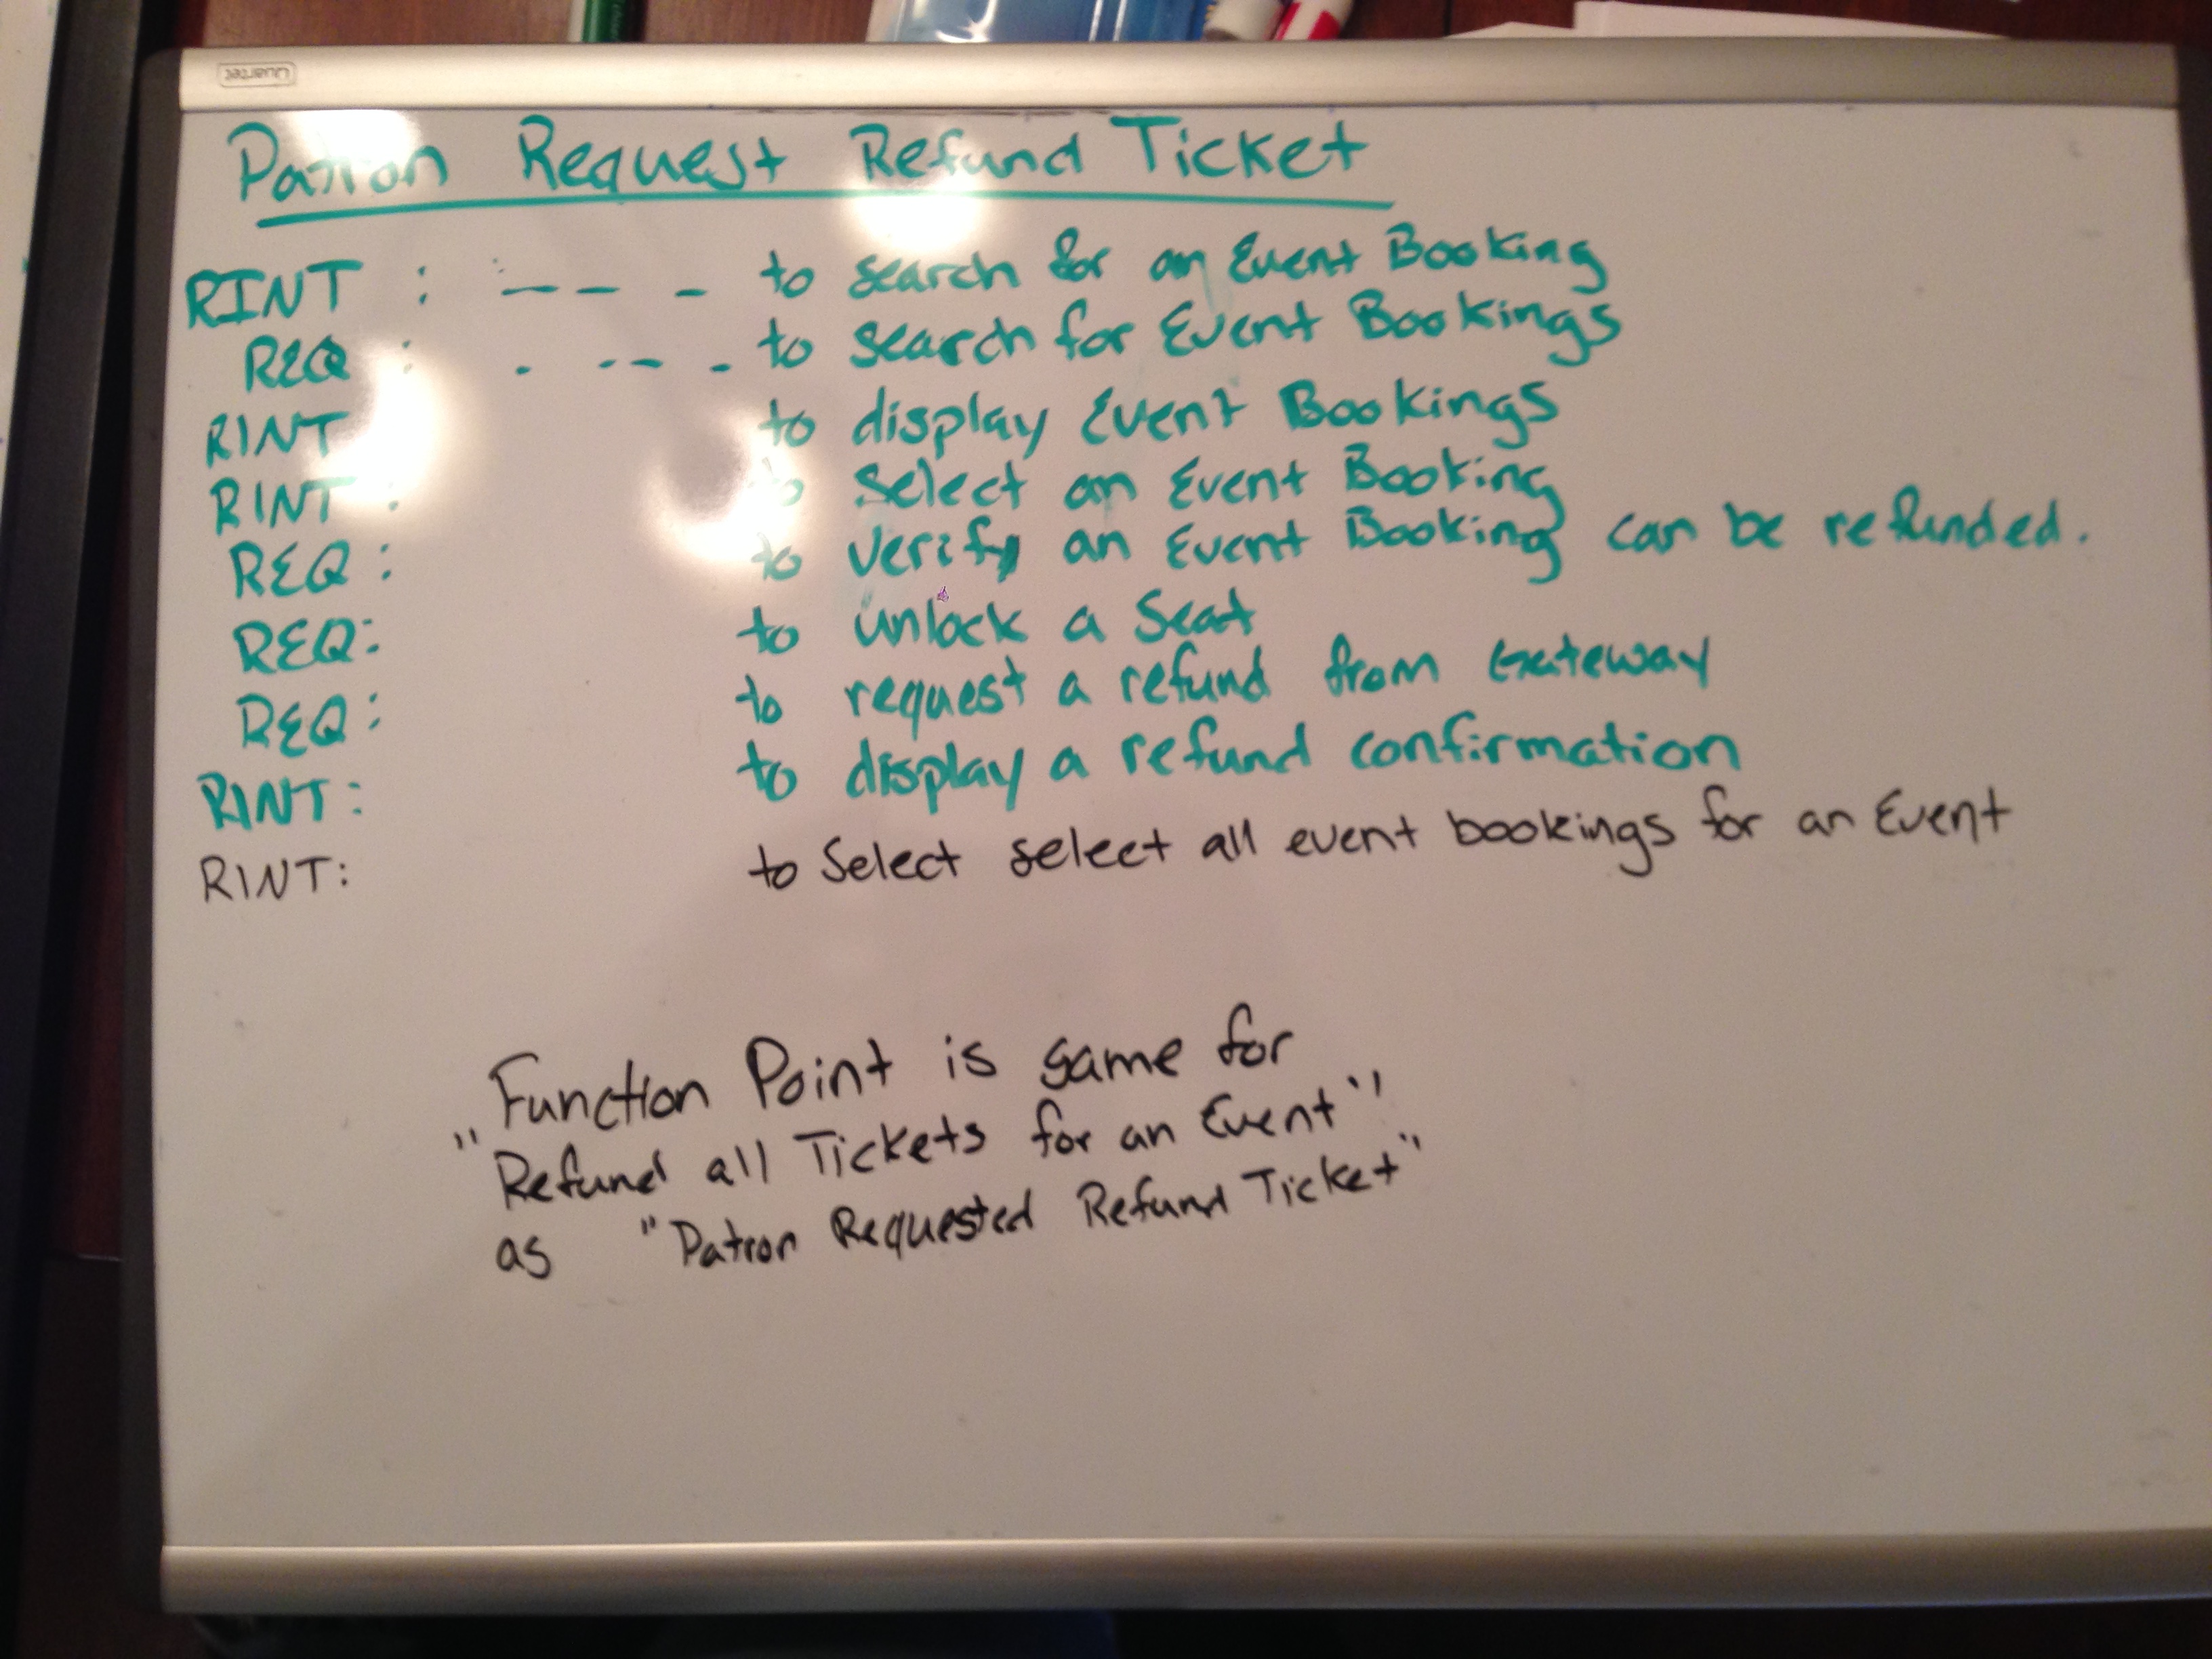 Quartet
Patron Request Refund Ticket
RINT : - - - to search for an Event Booking
REQ : - -- - to search for Event Bookings
RINT to display Event Bookings
RINT : to Select an Event Booking
REQ : to verify an Event Booking can be refunded.
REQ: to unlock a Seat
REQ: to request a refund from Gateway
RINT: to display a refund confirmation
RINT: to Select select all event bookings for an Event
Function Point is same for
"Refund all Tickets for an Event"
as "Patron Requested Refund Ticket"